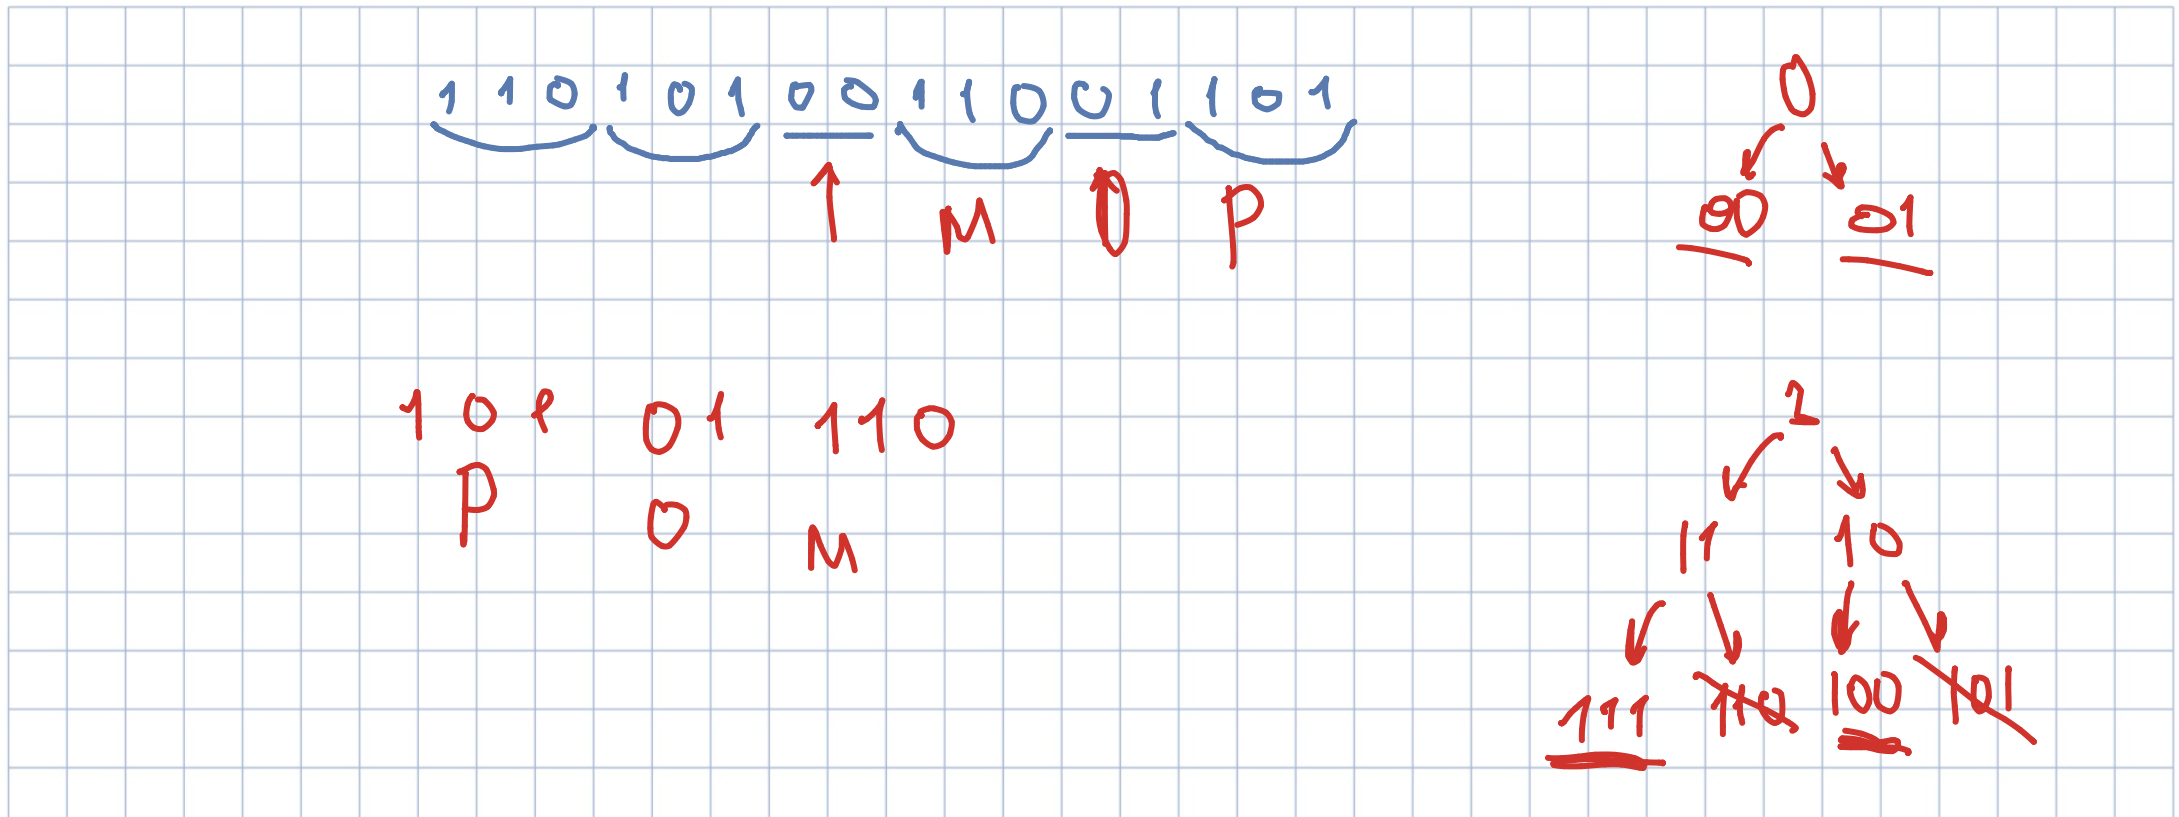 1 1 0 1 0 1 0 0 1 1 0 0 1 1 0 1
М О Р
1 0 1 01 110
Р О М
0
00 01
1
11 10
111 110 100 101